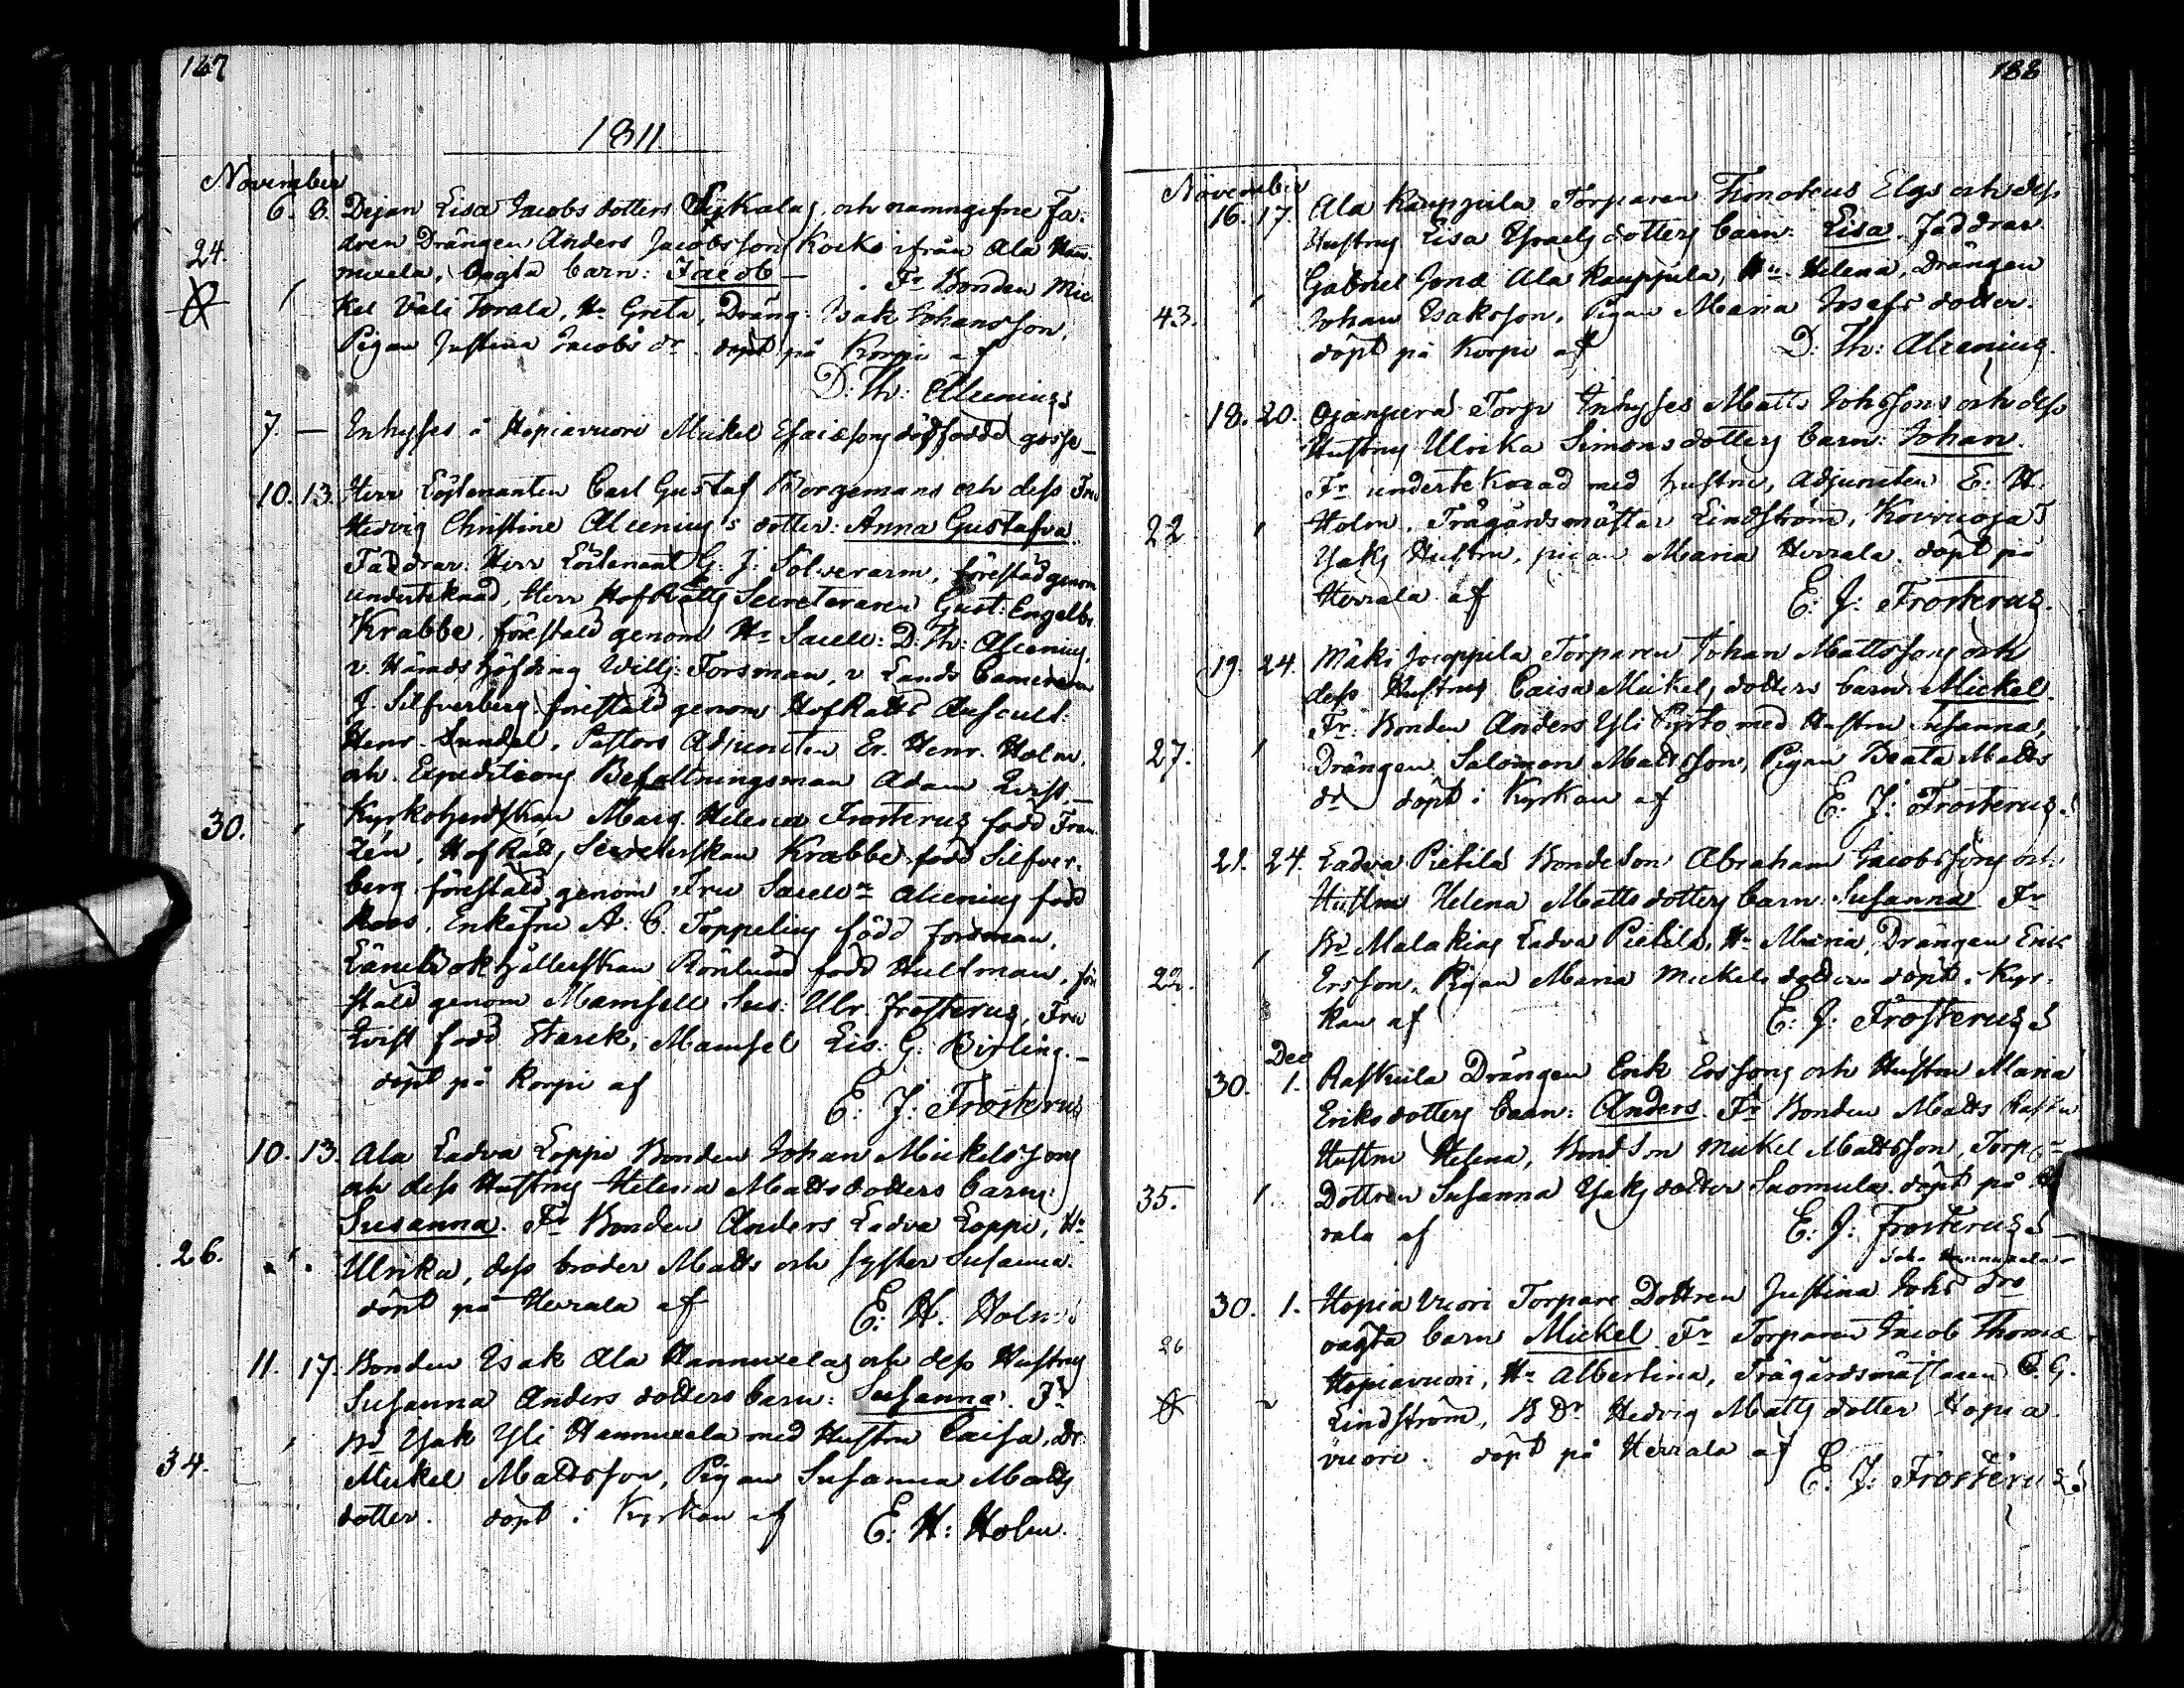 187
1811.
November
6. 8. Pigan Lisa Jacobs dotters Sykalas, och namngifne Fa-
dren Drängen Anders Jacobsson Koiko ifrån Ala Han-
24.
nuxela, oägta barn: Jacob — Fr Bonden Mic-
kel Väli Torala, Hu Greta, Dräng Isak Johansson,
Pigan Justina Jacobs dr. döpt på Korpi af
D: Th: Alcenius
7. — Inhyses å Hopiavuori Mickel Esaiæsons dödfödde gosse —
10. 13. Herr Löjtenanten Carl Gustaf Borgemans och dess Fru
Hedvig Christine Alcenius's dotter: Anna Gustafva.
Faddrar: Herr Löitenant G. J: Sölverarm, förestäld genom
underteknad, Herr HofRätts Secreteraren Gust: Engelbr.
Krabbe, förestäld genom Hr Sacell: D: Th: Alcenius,
v. Häradshöfding Willj: Forsman, v Lands Cameraren
J. Silfverberg förestäld genom HofRätts Auscult:
Henr. Sundel, Pastors Adjuncten Er. Henr. Holm,
och Expeditions Befallningsman Adam Qvist —
30. Kyrkoherdskan Marg. Helena Frosterus född Fran-
zén, HofRätts Secreterskan Krabbe född Silfver-
berg förestäld genom Fru Sacell. Alcenius född
Roos, Enkefru A. C. Toppelius född Fordman,
född Hultman, för-
stäld genom Mamsell Sus: Ulr. Frosterus, Fru
Qvist född Starck, Mamsel Lis: G: Birling. —
döpt på Korpi af
E: J: Frosterus
10. 13. Ala Ladva Loppi Bonden Johan Mickelssons
och dess Hustrus Helena Matts dotters barn:
Susanna. Fr Bonden Anders Ladva Loppi, Hu
26. Ulrika, dess broder Matts och syster Susanna.
döpt på Herrala af
E: H. Holm
11. 17. Bonden Isak Ala Hannuxelas och dess Hustrus
Susanna Anders dotters barn: Susanna. Fr
Bd Isak Yli Hannuxela med Hustru Caisa, Dr:
34.
Mickel Mattsson, Pigan Susanna Matts
dotter. döpt i Kyrkan af
E: H: Holm.
188
November
16. 17. Ala Kauppila Torparen Timoteus Elgs och dess
Hustrus Lisa Israels dotters barn: Lisa. Faddrar
Gabriel Jonæ Ala Kauppila, Hu Helena, Drängen
43. Johan Isaksson, Pigan Maria Josefs dotter.
döpt på Korpi af
D: Th: Alcenius.
18. 20. Ojanperä Torp Inhyses Matts Johssons och dess
Hustrus Ulrika Simons dotters barn: Johan.
Fr underteknad med hustru, Adjuncten E: H.
22. Holm, Trägårdsmästar Lindström, T
Isaks Hustru, pigan Maria Herrala döpt på
Herrala af
E: J: Frosterus.
19. 24. Mäki Jouppila Torparen Johan Mattssons och
dess Hustrus Caisa Mickels dotters barn: Mickel.
Fr: Bonden Anders Yli med Hustru Susanna,
27. Drängen Salomon Mattsson, Pigan Beata Matts
dr döpt i Kyrkan af
E: J: Frosterus.
21. 24. Ladva Pietilä BondeSon Abraham Jacobssons och
Hustrus Helena Matts dotters barn: Susanna Fr
Bd Malakias Ladva Pietila, Hu Maria, Drängen Eric
22.
Ersson, Pigan Maria Mickels dotter döpt i Kyr-
kan af
E: J: Frosterus
Dec
30. 1. Raskula Drängen Erik Erssons och Hustru Maria
Eriks dotters barn: Anders. Fr Bonden Matts Rasku
Hustru Helena, BondSon Mickel Mattsson, Torp
35. Dottren Susanna Isaks dotter Suomula. döpt på
rala af
E: J: Frosterus
30. 1. Hopia Vuori Torpare Dottren Justina Johs drs
26
oägta barn Mickel. Fr Torparen Jacob Thomæ
Hopiavuori, Hu Albertina, Trägårdsmästaren C. G.
Lindström, B Dr Hedvig Matts dotter Hopia
vuori. döpt på Herrala af
E. J: Frosterus